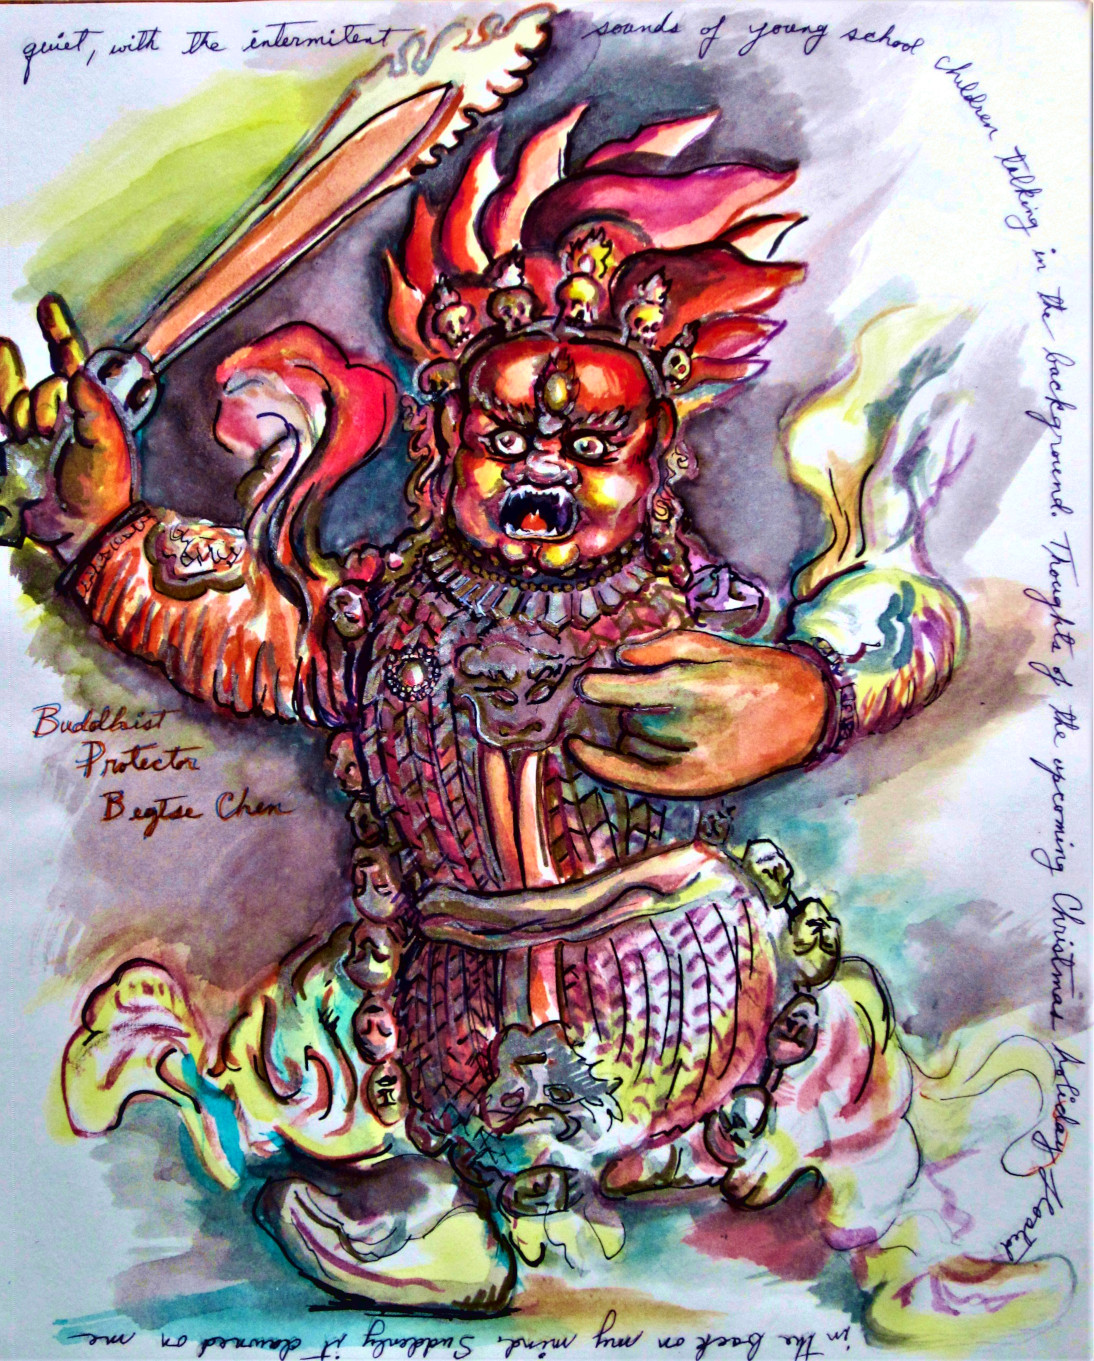 quiet, with the intermitent sounds of young school children talking in the background. Thoughts of the upcoming Christmas holiday floated
in the back on my mind. Suddenly it dawned on me
Buddhist
Protector
Begtse Chen